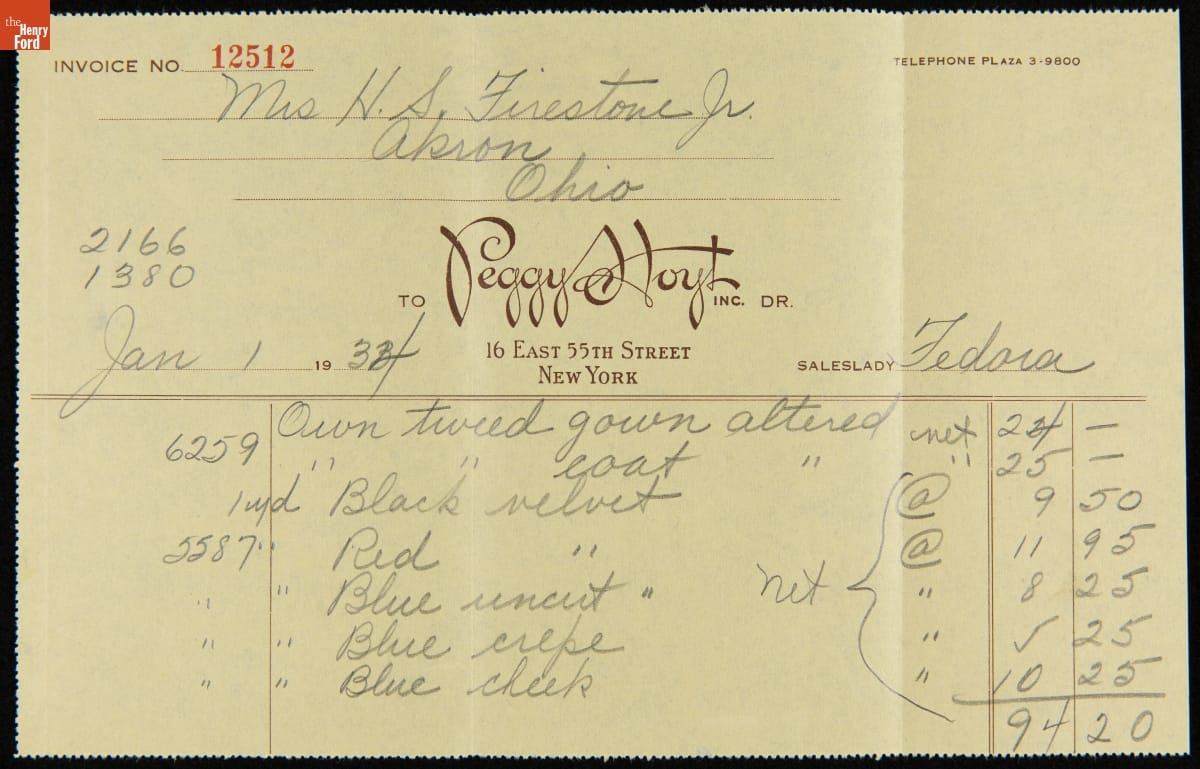 the Henry Ford
INVOICE NO. 12512
TELEPHONE PLAZA 3-9800
Mrs H. S. Firestone Jr.
Akron
Ohio
2166
1380
TO Peggy Hoyt INC. DR.
Jan 1 1934
16 EAST 55TH STREET
NEW YORK
SALESLADY Fedora
Own tweed gown altered net 24 —
6259 " " coat " " 25 —
1 yd Black velvet @ 9 50
5587 " Red " @ 11 95
" " Blue uncut " net " 8 25
" " Blue crepe " 5 25
" " Blue check " 10 25
94 20